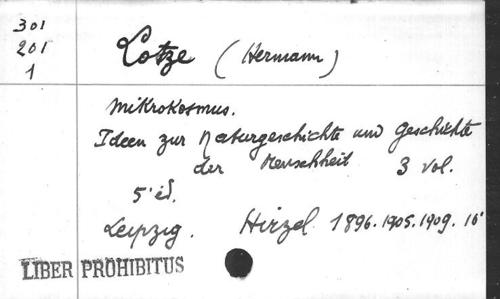 301
201
1
Lotze (Hermann)
Mikrokosmus.
Ideen zur Naturgeschichte und Geschichte
der Menschheit 3 vol.
5'éd.
Leipzig. Hirzel 1896.1905.1909. 16°
LIBER PROHIBITUS